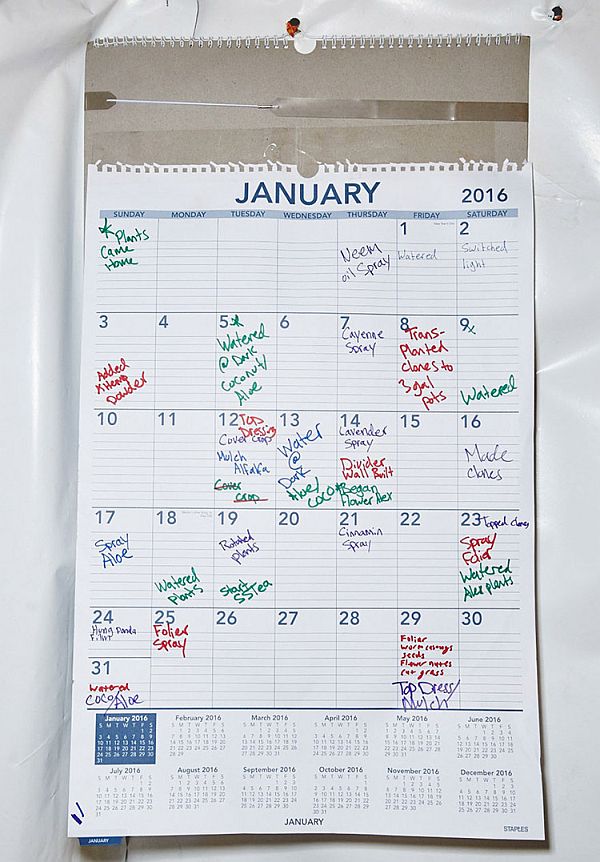 JANUARY 2016
SUNDAY MONDAY TUESDAY WEDNESDAY THURSDAY FRIDAY SATURDAY
* Plants
Came
Home
Neem
oil Spray
1
Watered
2
Switched
light
3
Added
Powder
4
5 *
Watered
@ Dark
Coconut/
Aloe
6
7
Cayenne
Spray
8
Trans-
Planted
Clones to
3 gal
pots
9x
Watered
10
11
12 Top
Dressing
Cover crop
Mulch
Alfalfa
Cover
crop
13
Water
@
Dark
Aloe/
COCO
14
Lavender
Spray
Divider
Wall Built
*Began
Flower Alex
15
16
Made
clones
17
Spray
Aloe
18
Watered
Plants
19
Rotated
plants
Start
SSTea
20
21
Cinnamin
Spray
22
23 Topped clones
Spray
Folier
Watered
Alex plants
24
Hung Panda
31
Watered
COCO/Aloe
25
Folier
Spray
26
27
28
29
Folier
worm casings
seeds
Flower nutes
rut grass
Top Dress/
Mulch
30
January 2016 February 2016 March 2016 April 2016 May 2016 June 2016
July 2016 August 2016 September 2016 October 2016 November 2016 December 2016
JANUARY
STAPLES
JANUARY